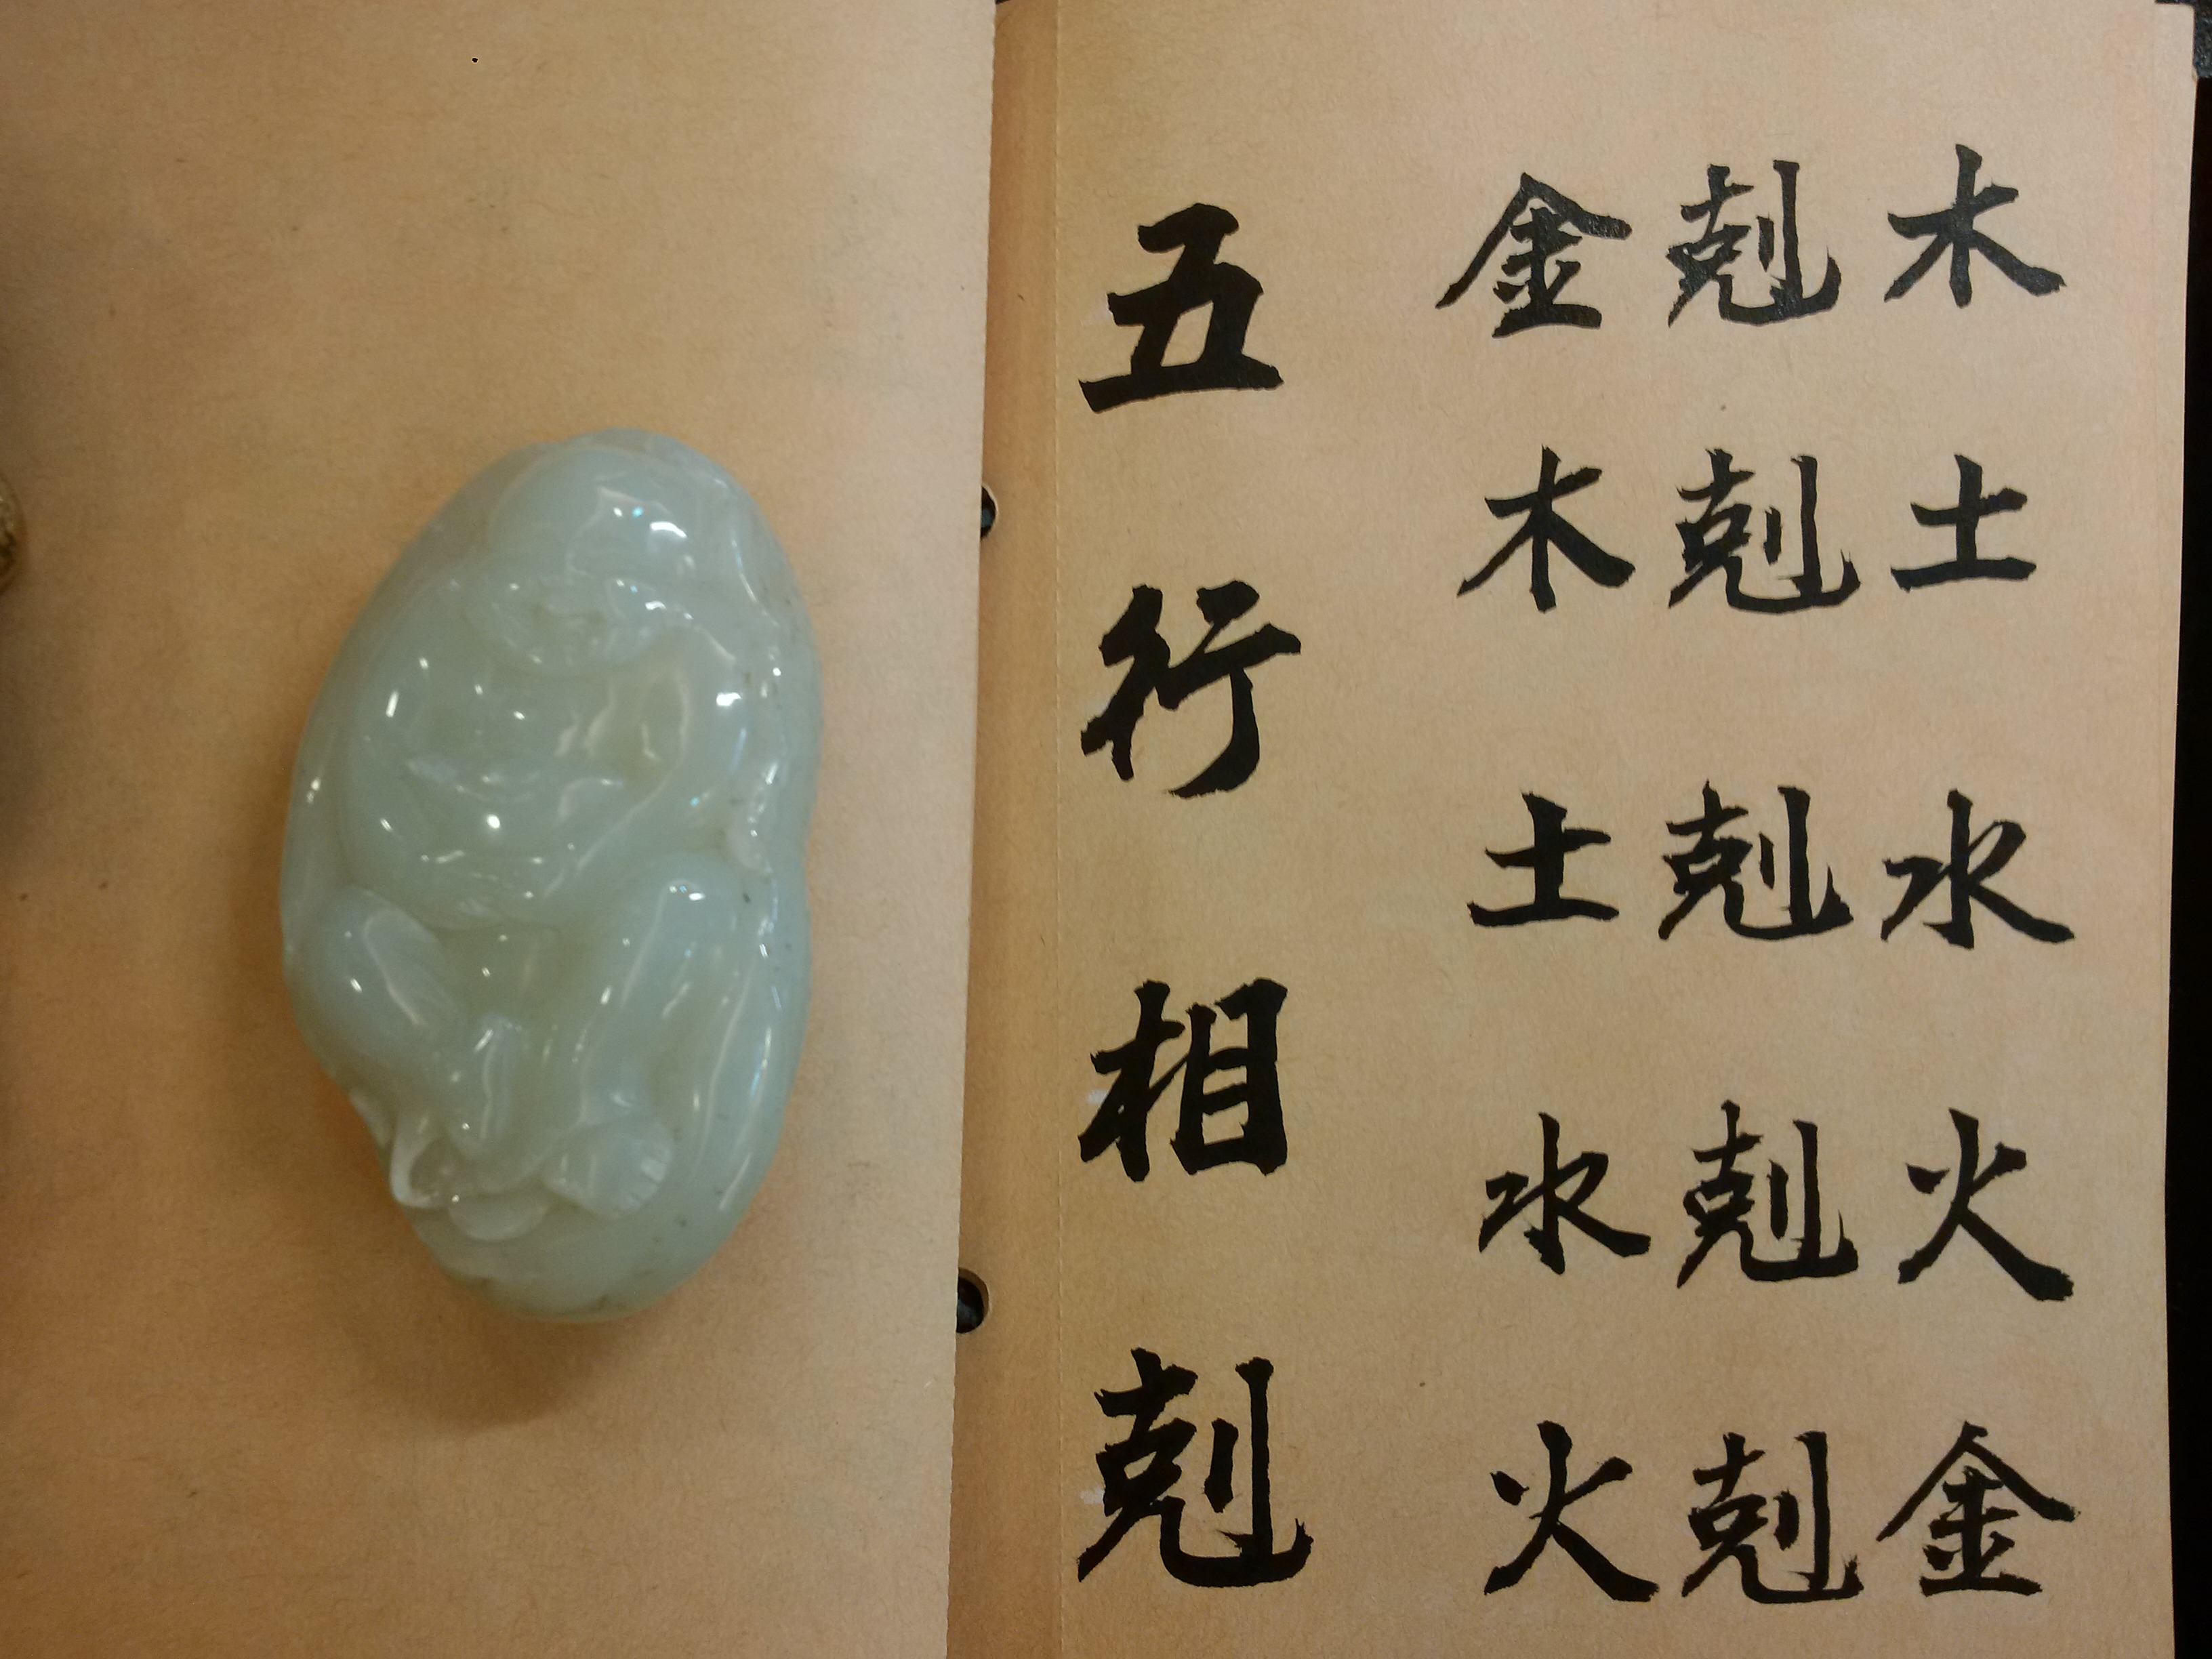 五行相剋
金剋木
木剋土
土剋水
水剋火
火剋金